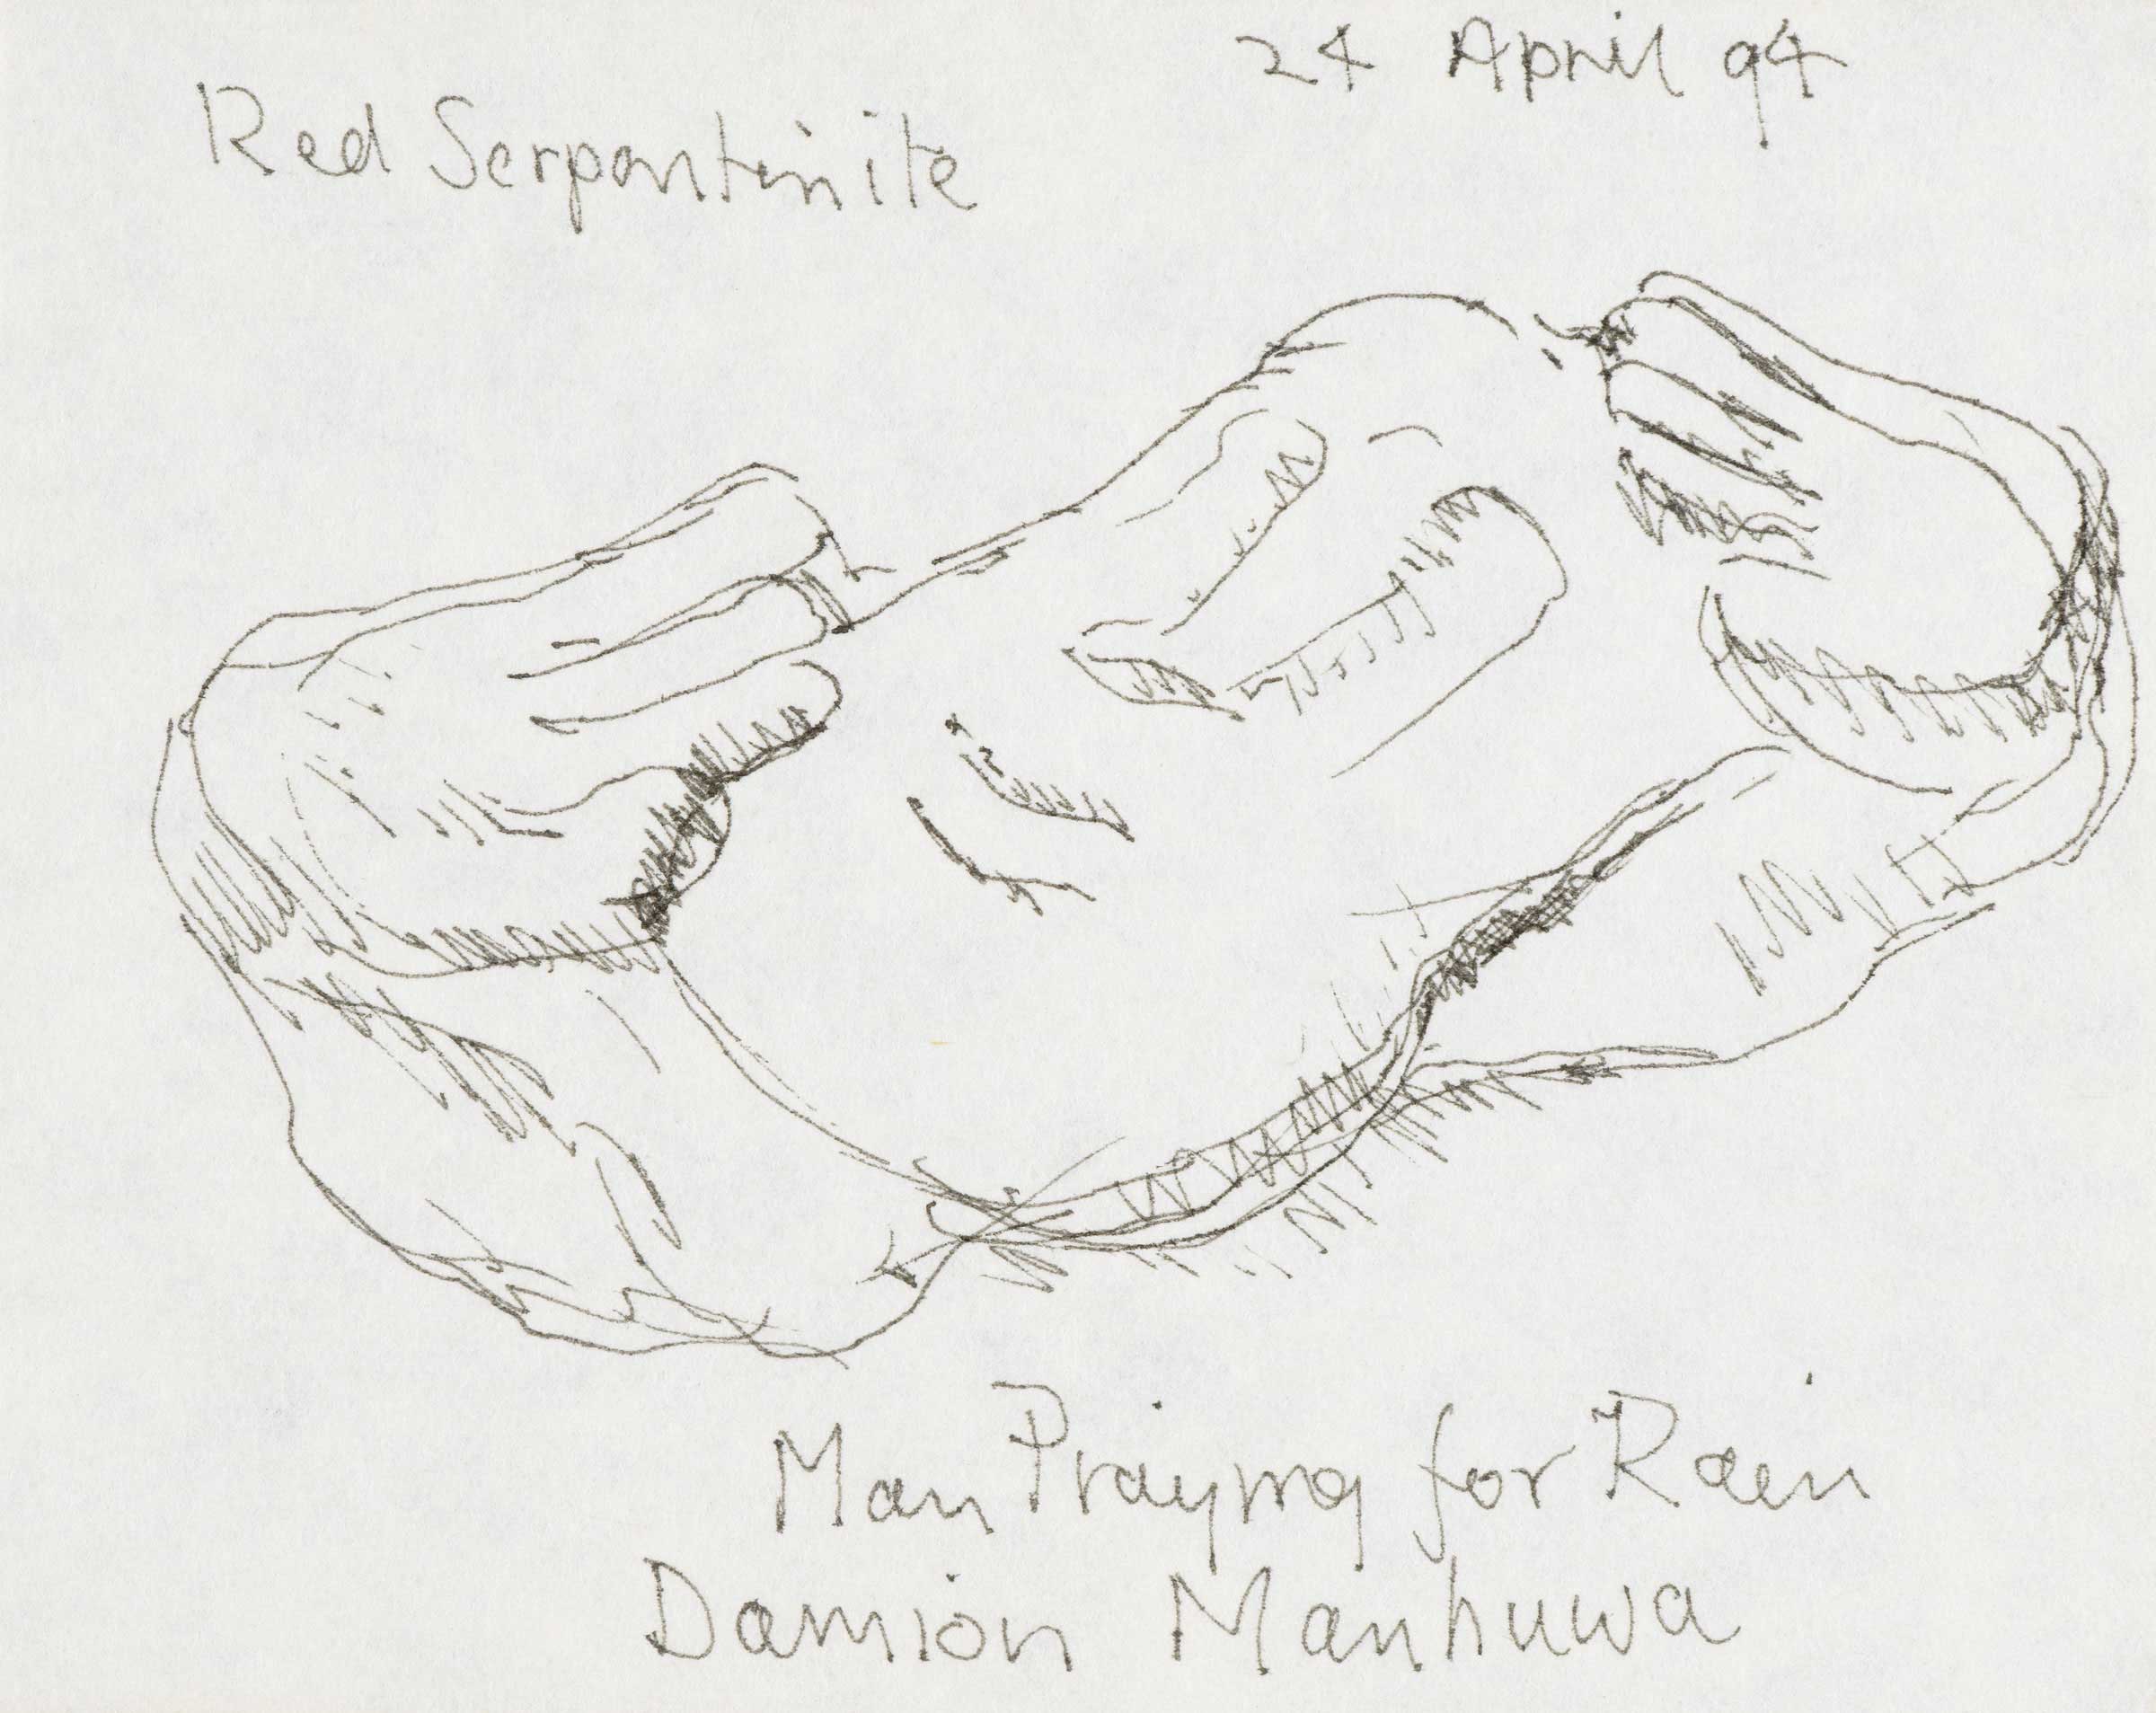 24 April 94
Red Serpentinite
Man Praying for Rain
Damion Manhuwa